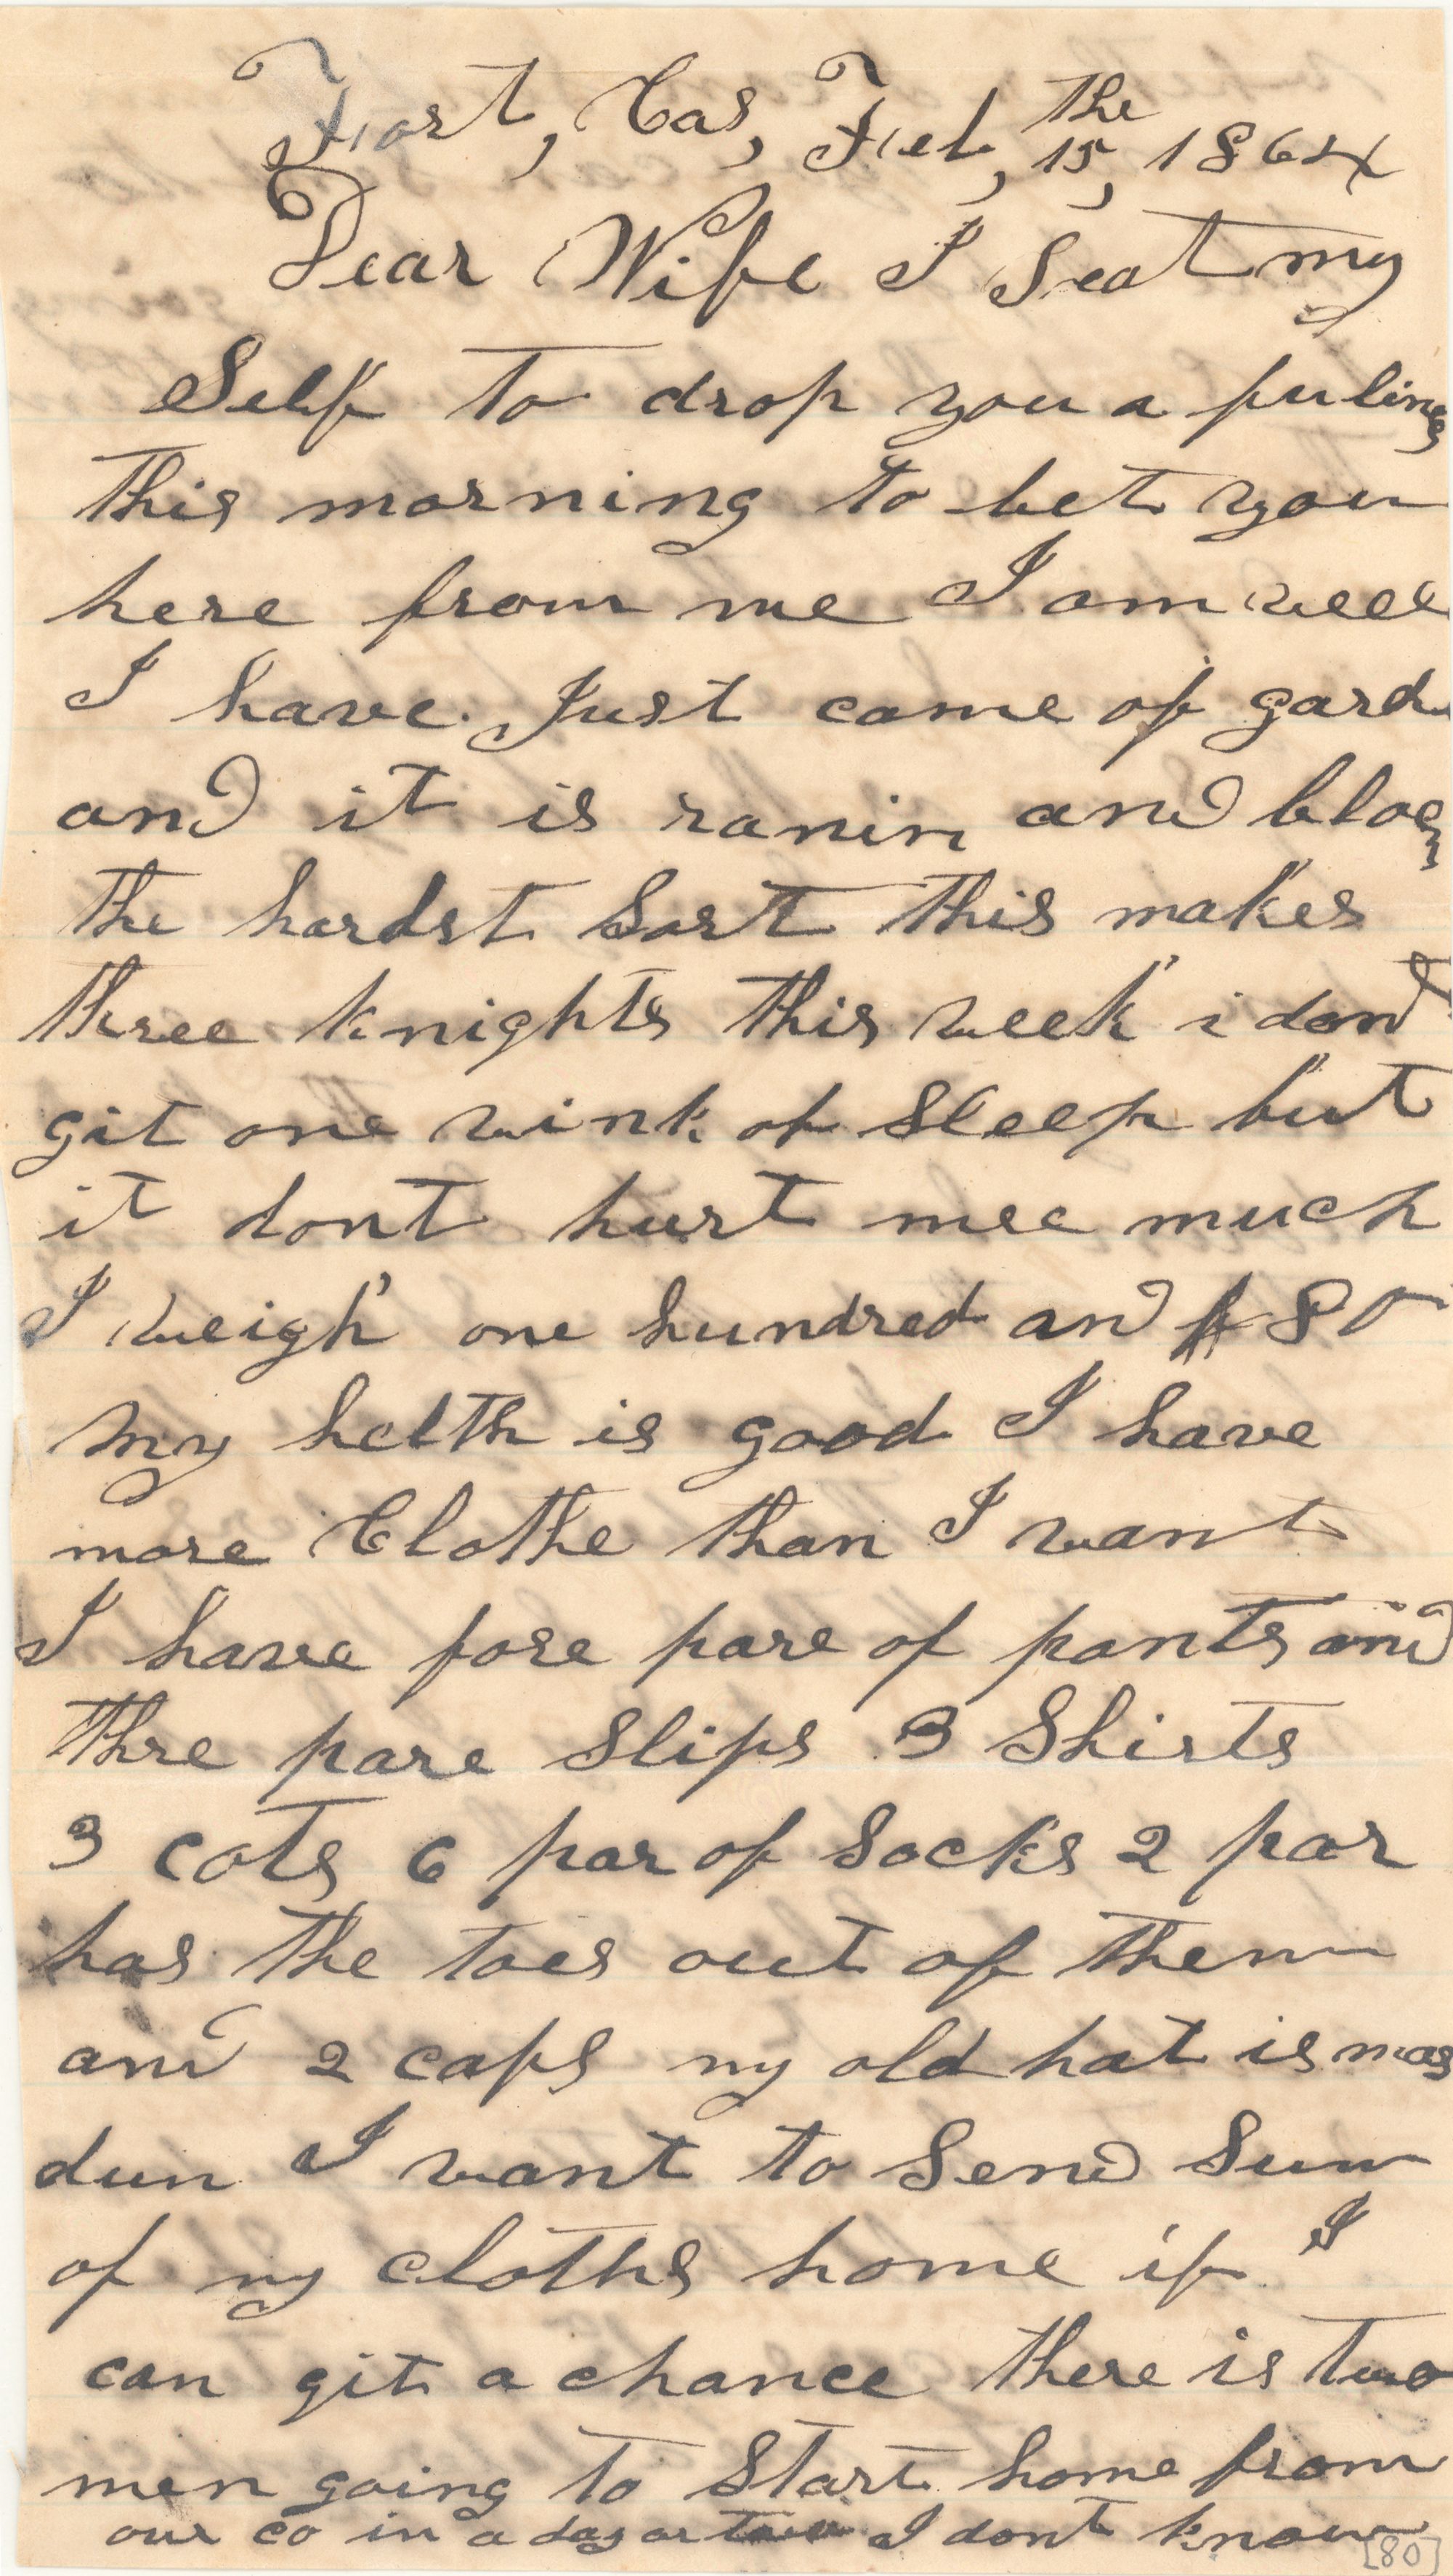 Fort, Cas, Feb, the 15, 1864
Dear Wife I Seat my
Self to drop you a fu lines
this morning to let you
here from me I am well
I have Just came of gard
and it is ranin and bloq
the hardst Sort this makes
three knights this week i dont
git one wink of Sleep but
it dont hurt mee much
I weigh one hundred and 80
my helth is good I have
more Clothe than I want
I have fore pare of pants and
thre pare Slips 3 Shirts
3 cots 6 par of Socks 2 par
has the toes out of them
and 2 caps my old hat is mos
dun I want to Send Sum
of my cloths home if I
can git a chance there is two
men going to Start home from
our co in a day or two I dont know
[80]